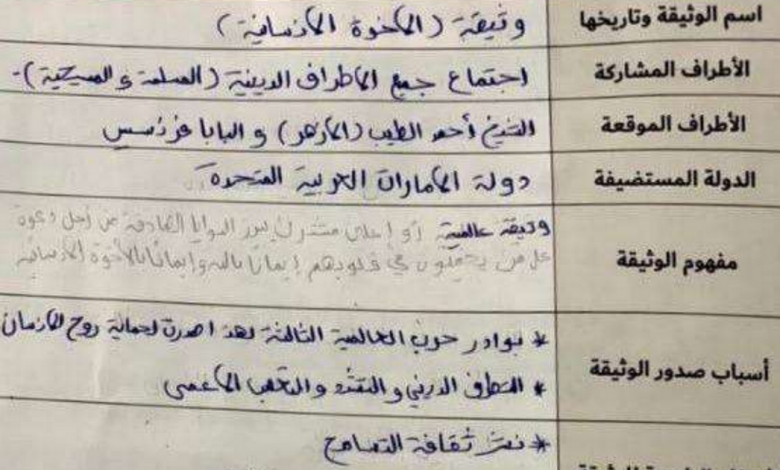 اسم الوثيقة وتاريخها وثيقة (الأخوة الإنسانية)
الأطراف المشاركة اجتماع جمع الأطراف الدينية (المسلمة و المسيحية) -
الأطراف الموقعة الشيخ أحمد الطيب (الأزهر) و البابا فرنسيس
الدولة المستضيفة دولة الإمارات العربية المتحدة
مفهوم الوثيقة
وثيقة عالمية أو إعلان مشترك النوايا الصادقة من أجل دعوة
كل من يحملون في قلوبهم إيمانًا بالله وإيمانًا بالأخوة الإنسانية
أسباب صدور الوثيقة
* بوادر حرب العالمية الثالثة لهذا اصدرت لحماية روح الإنسان
* التطرف الديني و التشدد و التعصب الأعمى
* نشر ثقافة التسامح